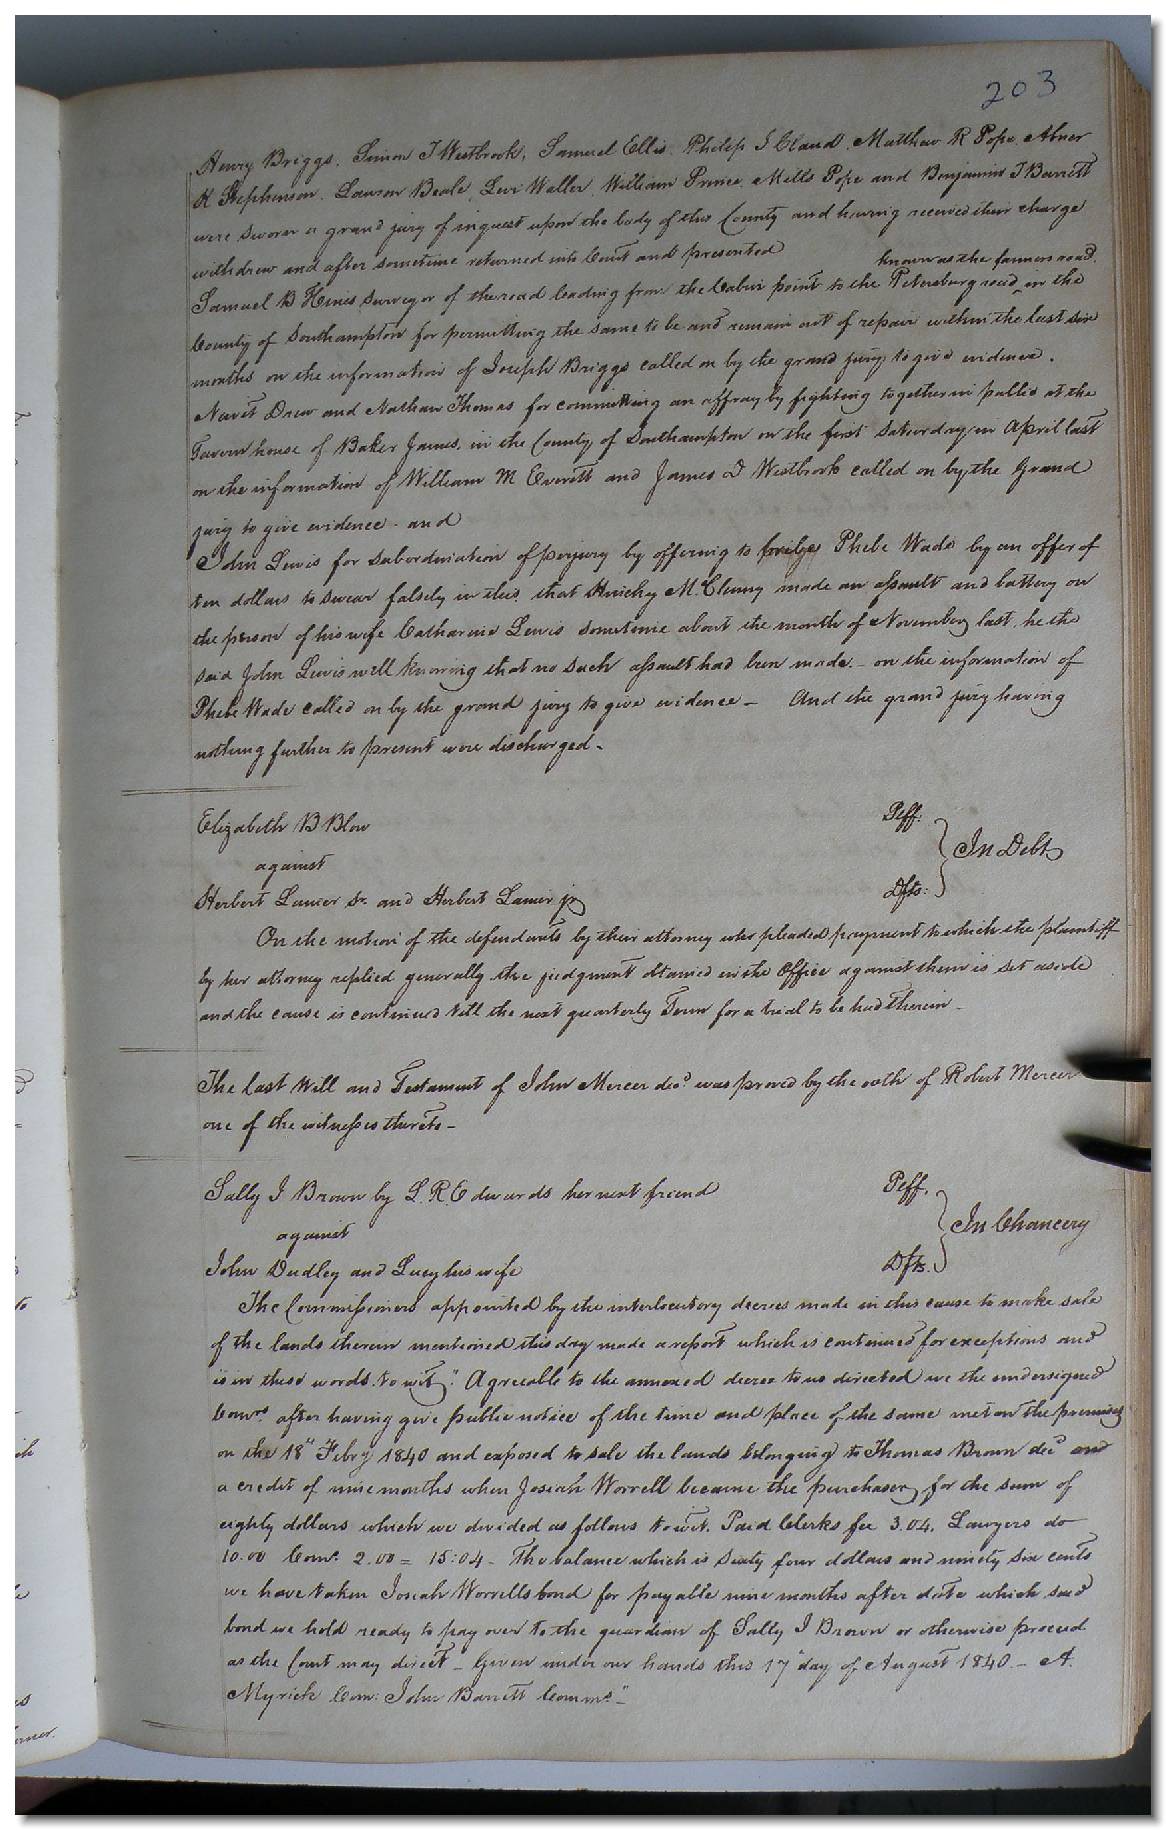 203
Henry Briggs, Simon T Westbrook, Samuel Ellis, Philip S Claud, Matthew R Pope, Abner
R Stephenson, Lawson Beale, Levi Waller, William Prince, Mills Pope and Benjamin T Barrett
were sworn a grand jury of inquest upon the body of this County and having received their charge
withdrew and after sometime returned into Court and presented
known as the famous road
Samuel B Hines, surveyor of the road leading from the Cabin point to the Petersburg road in the
County of Southampton for permitting the same to be and remain out of repair within the last six
months on the information of Joseph Briggs called on by the grand jury to give evidence.
Navit Drew and Nathan Thomas for committing an affray by fighting together in public at the
Tavern house of Baker James, in the County of Southampton on the first Saturday in April last
on the information of William M Everitt and James D Westbrook called on by the Grand
jury to give evidence - and
John Lewis for subordination of perjury by offering to bribe Phebe Wade by an offer of
ten dollars to swear falsely in this that M. Clenny made an assault and battery on
the person of his wife Catharine Lewis sometime about the month of November last, he the
said John Lewis well knowing that no such assault had been made - on the information of
Phebe Wade called on by the grand jury to give evidence - And the grand jury having
nothing further to present were discharged -
Elizabeth B Blow Plff.
against In Debt
Herbert Lanier Sr. and Herbert Lanier jr Dfts.
On the motion of the defendants by their attorney who pleaded payment to which the plaintiff
by her attorney replied generally the judgment obtained in the Office against them is set aside
and the cause is continued till the next quarterly Term for a trial to be had therein -
The last Will and Testament of John Mercer decd was proved by the oath of Robert Mercer
one of the witnesses thereto -
Sally I Brown by L. R. Edwards her next friend Plff.
against In Chancery
John Dudley and Lucy his wife Dfts.
The Commissioners appointed by the interlocutory decree made in this cause to make sale
of the lands therein mentioned this day made a report which is continued for exceptions and
is in these words to wit, "Agreeable to the annexed decree to us directed we the undersigned
Comrs after having give public notice of the time and place of the same met on the premises
on the 18" Febry 1840 and exposed to sale the lands belonging to Thomas Brown decd and
a credit of nine months when Josiah Worrell became the purchaser, for the sum of
eighty dollars which we divided as follows to wit. Paid Clerks fee 3.04. Lawyers do
10.00 Comr. 2.00 = 15:04 - The balance which is sixty four dollars and ninety six cents
we have taken Josiah Worrells bond for payable nine months after date which said
bond we hold ready to pay over to the guardian of Sally I Brown or otherwise proceed
as the Court may direct - Given under our hands this 17" day of August 1840 - A.
Myrick Com: John Barrett Commr."